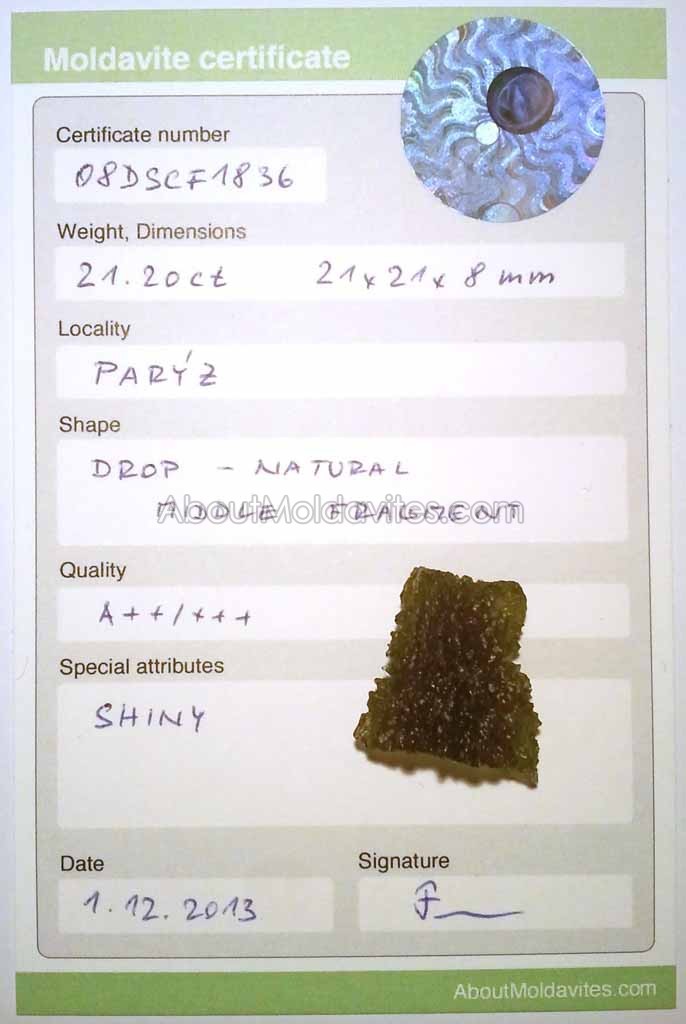 Moldavite certificate
Certificate number
08DSCF1836
Weight, Dimensions
21.20ct 21x21x 8 mm
Locality
PARÝZ
Shape
DROP - NATURAL
MIDDLE FRAGMENT
AboutMoldavites.com
Quality
A++/+++
Special attributes
SHINY
Date Signature
1.12.2013
AboutMoldavites.com